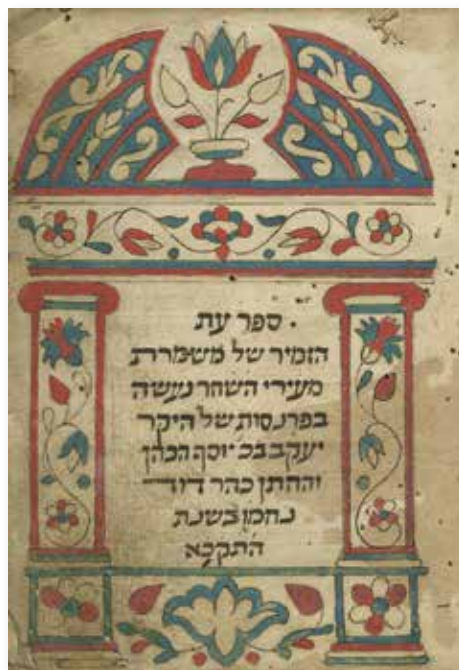 ספר עת
הזמיר של משמרת
מעירי השחר נעשה
בפרנסות של היקר
יעקב בכ׳ יוסף הכהן
והחתן כהר דוד
נחמן בשנת
התקכא